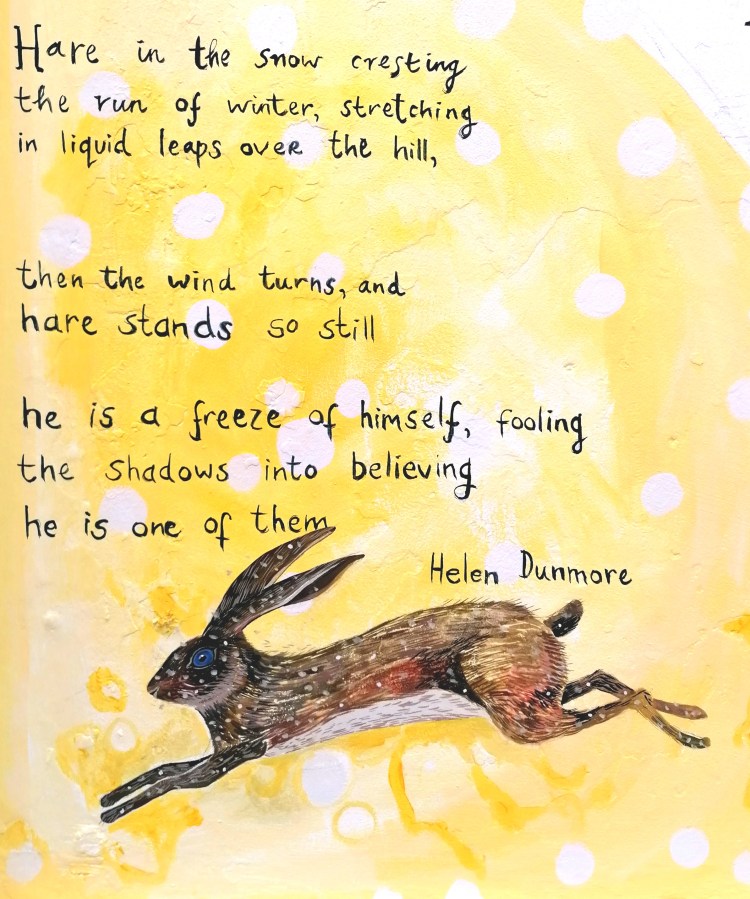 Hare in the snow cresting
the run of winter, stretching
in liquid leaps over the hill,
then the wind turns, and
hare stands so still
he is a freeze of himself, fooling
the shadows into believing
he is one of them
Helen Dunmore